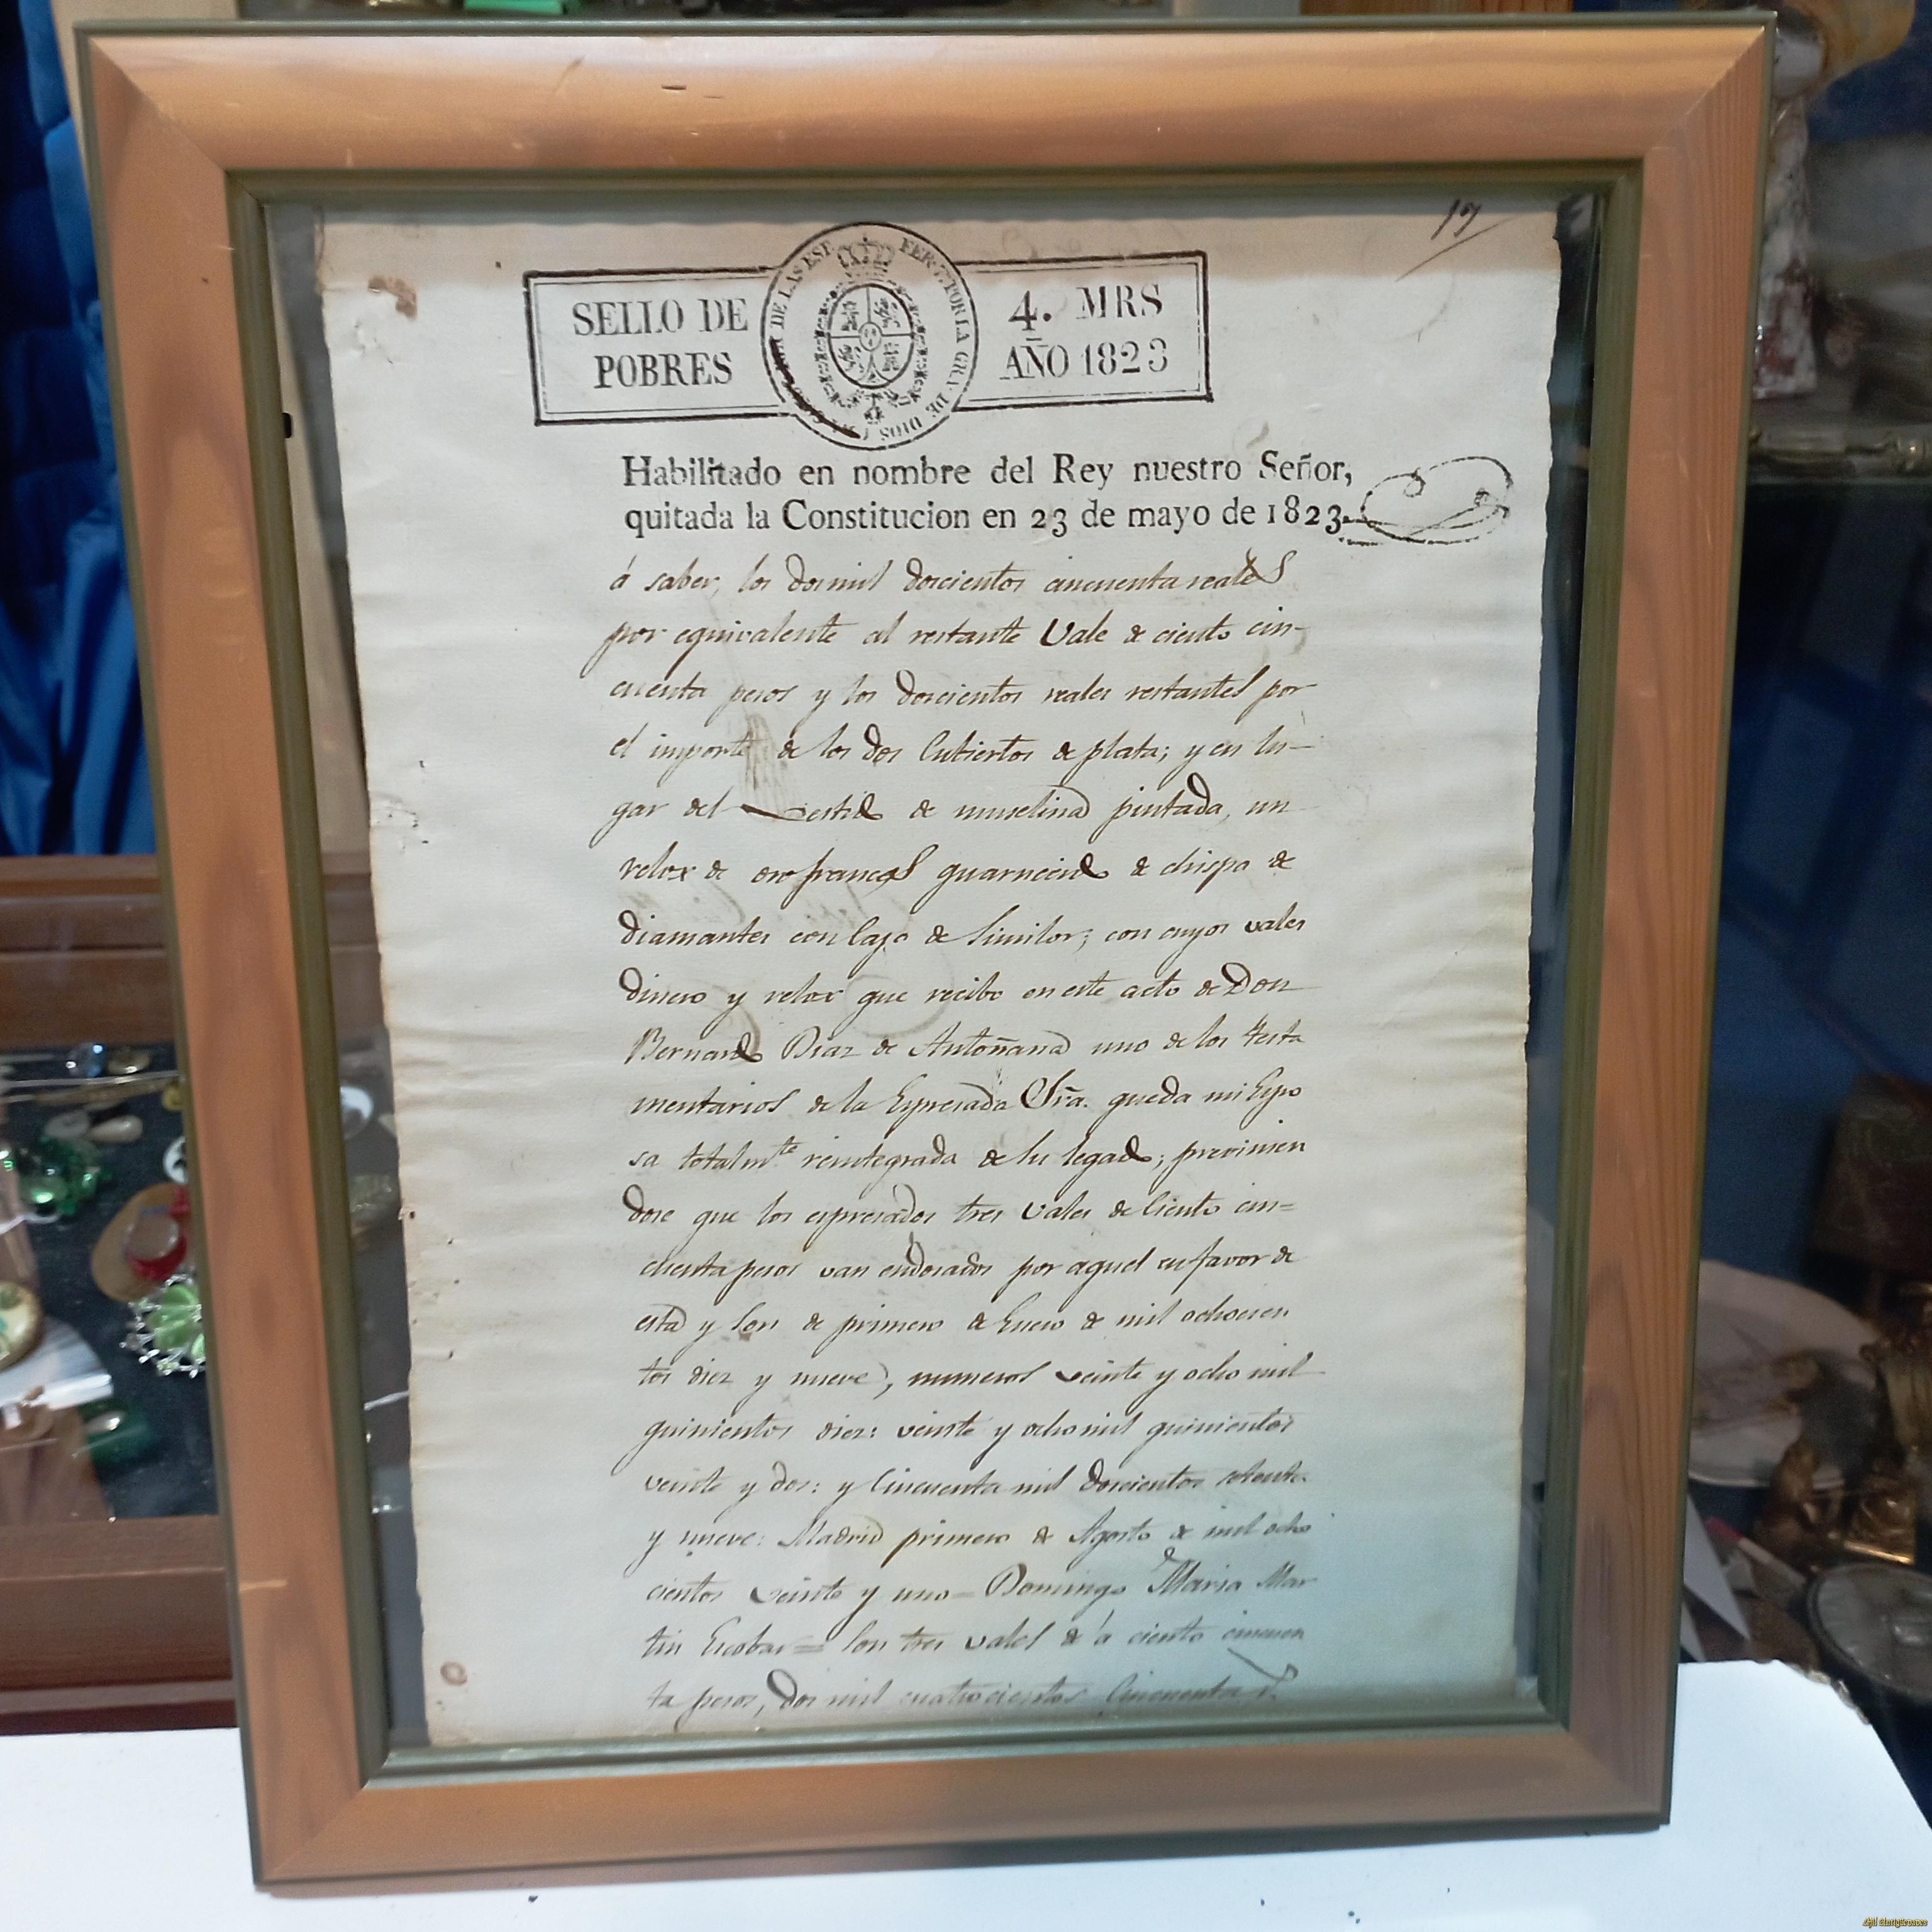 17
SELLO DE
POBRES
4. MRS
AÑO 1823
FER. 7. POR LA GRA. DE DIOS
DE LAS ESP.
Habilitado en nombre del Rey nuestro Señor,
quitada la Constitucion en 23 de mayo de 1823.
á saber, los dos mil doscientos cincuenta reales
por equivalente al restante Vale de ciento cin-
cuenta pesos y los doscientos reales restantes por
el importe de los dos Cubiertos de plata; y en lu-
gar del vestido de muselina pintada, un
relox de oro frances guarnecido de chispa de
diamantes con lazo de similor; con cuyos vales
dinero y relox que recibo en este acto de Don
Bernardo Diaz de Antoñana uno de los testa
mentarios de la Espresada Sra. queda mi Espo
sa totalmte reintegrada de su legado; previnien
dose que los espresados tres Vales de Ciento cin=
cuenta pesos van endosados por aquel en favor de
esta y son de primero de Enero de mil ochocien
tos diez y nueve, numeros veinte y ocho mil
quinientos diez: veinte y ocho mil quinientos
veinte y dos: y Cincuenta mil doscientos setenta
y nueve: Madrid primero de Agosto de mil ocho
cientos veinte y uno = Domingo Maria Mar
tin Escobar = Son tres vales de á ciento cincuen
ta pesos, dos mil cuatrocientos Cincuenta